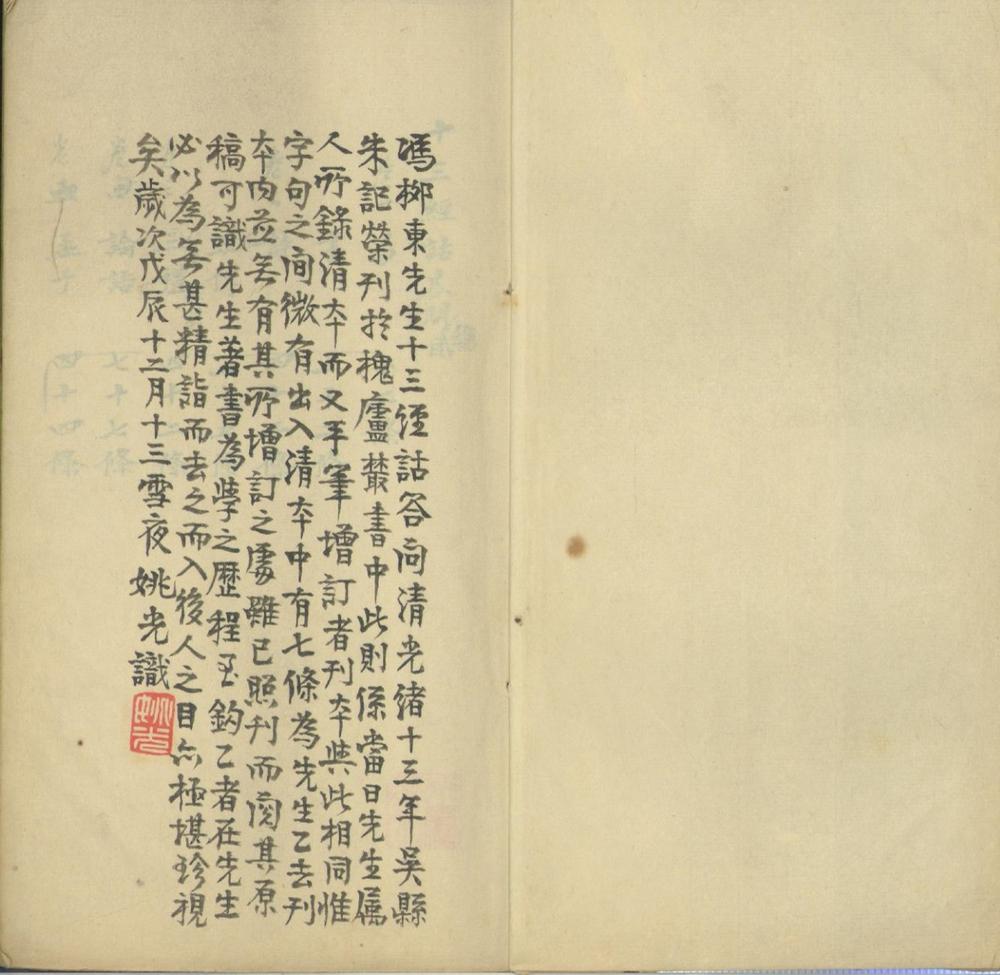 馮栁東先生十三經詁答问清光緒十三年吳縣
朱記榮刊於槐廬叢書中此則係當日先生属
人所錄清夲而又手筆增訂者刋夲與此相同惟
字句之间微有出入清夲中有七條為先生乙去刋
夲内並无有其所增訂之處雖已照刋而阅其原
稿可識先生著書為學之歷程至鈎乙者在先生
必以為无甚精詣而去之而入後人之目亦極堪珍視
矣歲次戊辰十二月十三雪夜姚光識
姚光